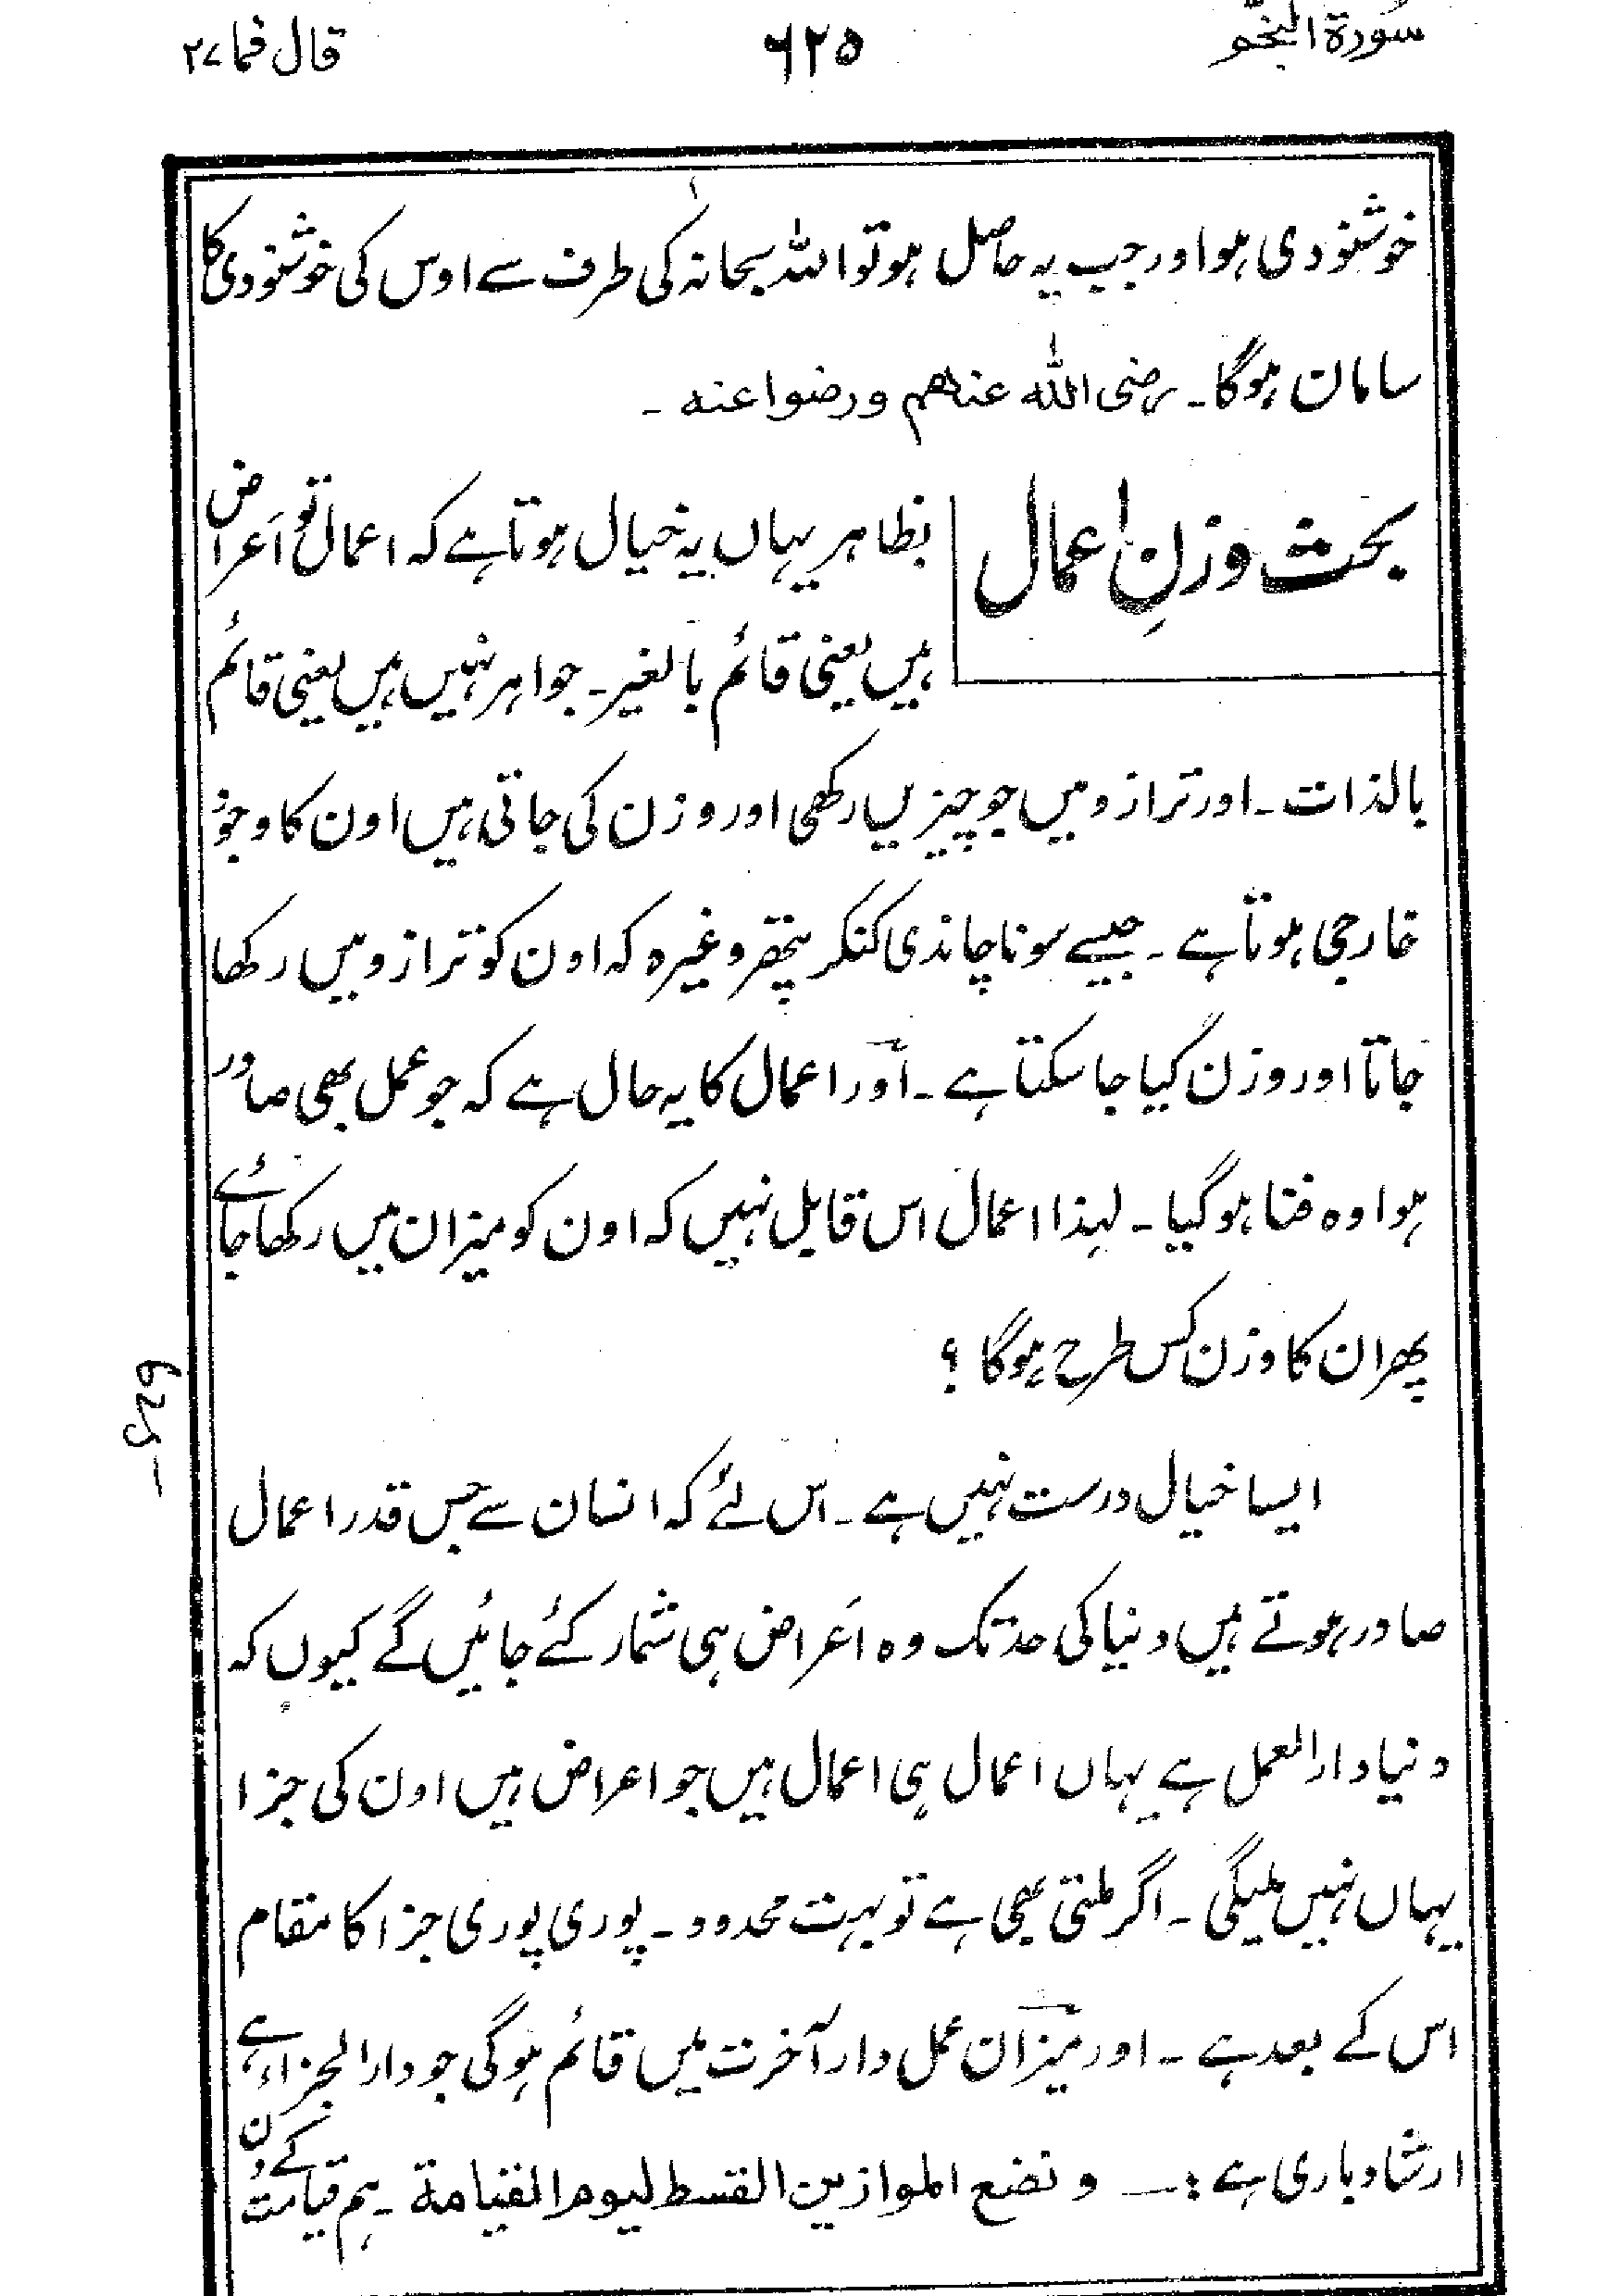 سورة النجم ۶۲۵ قال فما ۲۷
خوشنودی ہو اور جب یہ حاصل ہو تو اللہ سبحانہ کی طرف سے اوس کی خوشنودی کا
سامان ہوگا۔ رضی اللہ عنھم ورضوا عنہ ۔
بحث وزنِ اعمال
بظاہر یہاں یہ خیال ہوتا ہے کہ اعمال تو اَعراض
ہیں یعنی قائم بالغیر۔ جواہر نہیں ہیں یعنی قائم
بالذات ۔ اور ترازو میں جو چیزیں رکھی اور وزن کی جاتی ہیں اون کا وجود
خارجی ہوتا ہے ۔ جیسے سونا چاندی کنکر پتھر وغیرہ کہ اون کو ترازو میں رکھا
جاتا اور وزن کیا جاسکتا ہے ۔ اور اعمال کا یہ حال ہے کہ جو عمل بھی صادر
ہوا وہ فنا ہوگیا ۔ لہذا اعمال اس قابل نہیں کہ اون کو میزان میں رکھا جائے
پھر ان کا وزن کس طرح ہوگا ؟
625
ایسا خیال درست نہیں ہے ۔ اس لئے کہ انسان سے جس قدر اعمال
صادر ہوتے ہیں دنیا کی حد تک وہ اَعراض ہی شمار کئے جائیں گے کیوں کہ
دنیا دار العمل ہے یہاں اعمال ہی اعمال ہیں جو اعراض ہیں اون کی جزا
یہاں نہیں ملیگی ۔ اگر ملتی بھی ہے تو بہت محدود ۔ پوری پوری جزا کا مقام
اس کے بعد ہے ۔ اور میزان عمل دار آخرت میں قائم ہوگی جو دار الجزاء ہے
ارشاد باری ہے :— ونضع الموازین القسط لیوم القیامة ۔ ہم قیامت کے دن